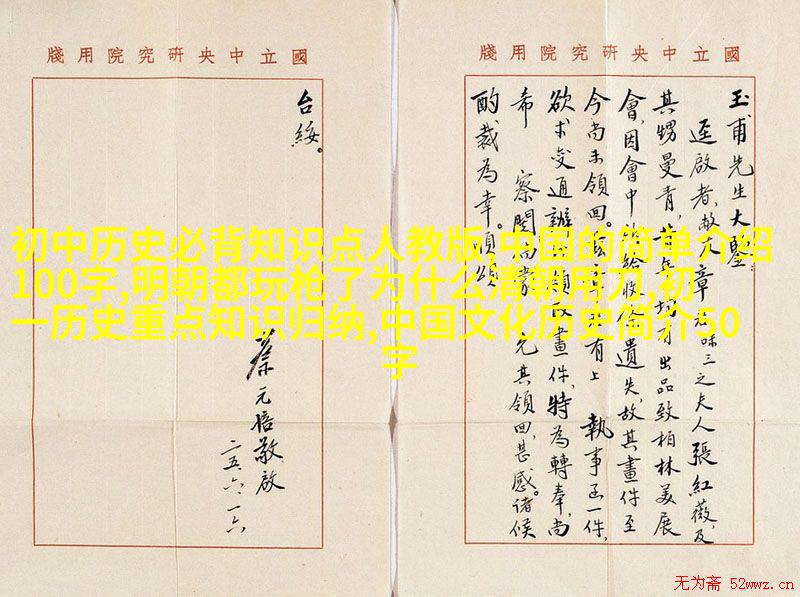 國立中央研究院用牋
玉甫先生大鑒
逕啟者,敝友章君味三之夫人張紅薇,及
其甥曼青,昔年均有出品致柏林美展
會,因會中 給收 遺失,故其畫件至
今尚未領回。 有上 執事函一件,
欲求變通辦 領取畫件,特為轉奉,尚
希 察閱 允其領回,甚感。諸候
酌裁為幸。順頌
國立中央研究院用牋
台綏。
蔡元培敬啟
二五、六、一六
初中历史必背知识点人教版,中国的简单介绍
100字,明朝都玩枪了为什么清朝用刀,初
一历史重点知识归纳,中国文化历史简介50
字
无为斋 52wwz.cn